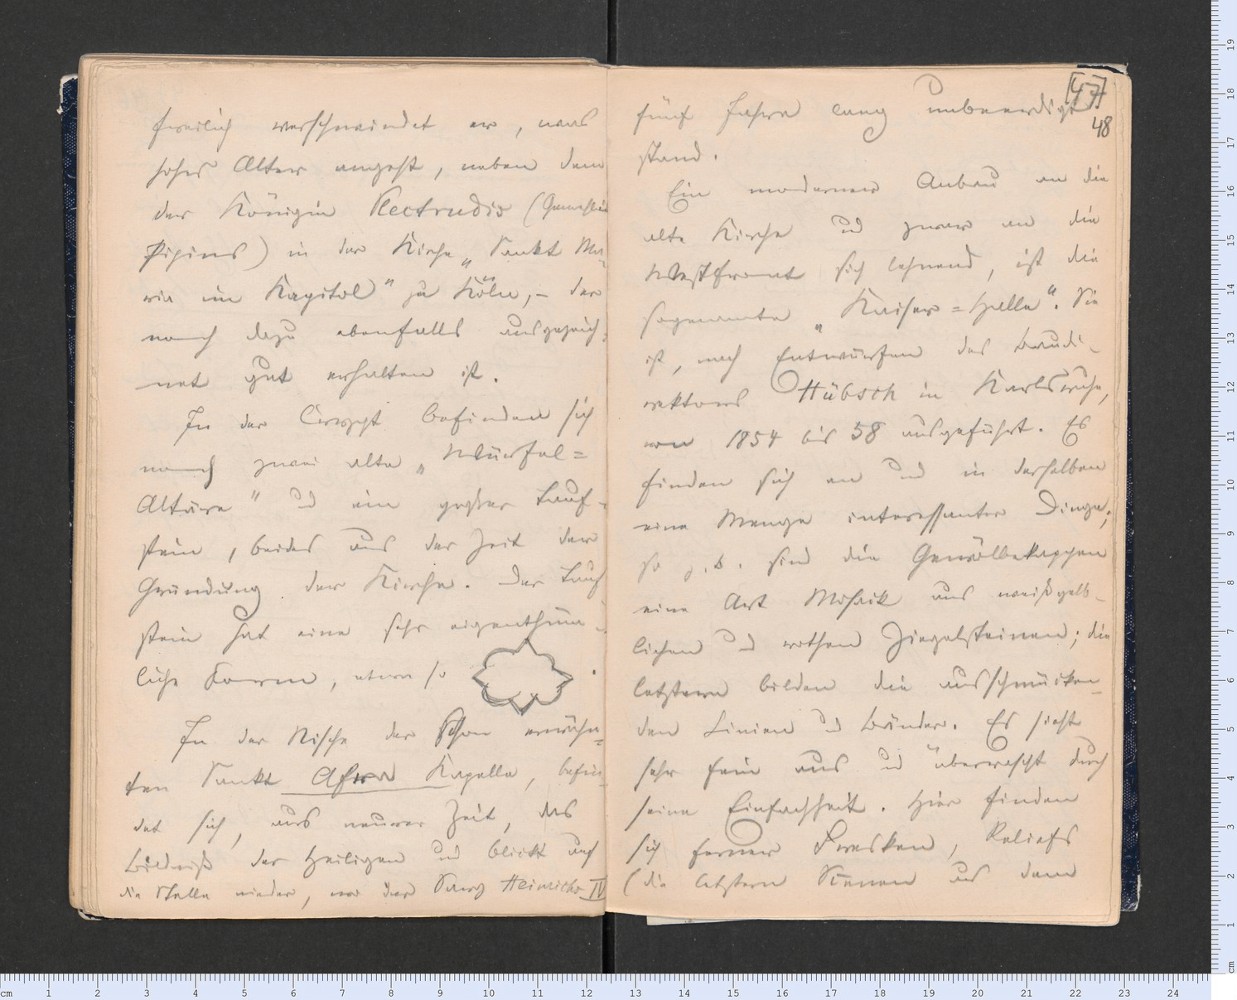 freilich verschwindet er, was
hohes Alter angeht, neben dem
der Königin Plectrudis (Gemahlin
Pipins) in der Kirche „Sankt Ma-
ria im Kapitol" zu Köln, – der
noch dazu ebenfalls ausgezeich-
net gut erhalten ist.
In der Crypt befinden sich
noch zwei alte „Würfel=
Altäre" und ein großer Tauf-
stein, beides aus der Zeit der
Gründung der Kirche. Der Tauf
stein hat eine sehr eigenthüm-
liche Form, etwa so .
In der Nische der schon erwähn=
ten Sankt Afra Kapelle, befin
det sich, aus neurer Zeit, das
Bildniß der Heiligen und blickt auf
die Stelle nieder, wo der Sarg Heinrichs IV
[47]
48
fünf Jahre lang unbeerdigt
stand.
Ein moderner Anbau an die
alte Kirche und zwar an die
Westfront sich lehnend, ist die
sogenannte „Kaiser=Halle". Sie
ist, nach Entwürfen des Baudi-
rektors Hübsch in Karlsruhe,
von 1854 bis 58 ausgeführt. Es
finden sich an und in derselben
eine Menge interessanter Dinge;
so z.B. sind die Gewölbekappen
eine Art Mosaik aus weißgelb-
lichen und rothen Ziegelsteinen; die
letztern bilden die ausschmücken-
den Linien und Bänder. Es sieht
sehr fein aus und überrascht durch
seine Einfachheit. Hier finden
sich ferner Fresken, Reliefs
(die letztern Scenen aus dem